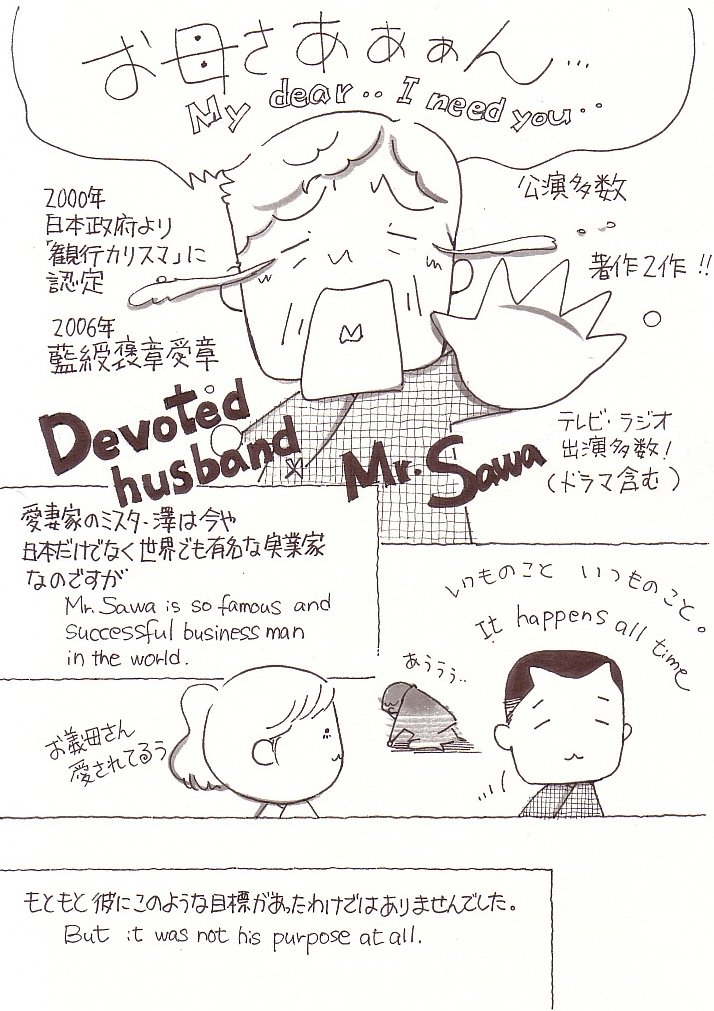 お母さあぁぁん…
My dear.. I need you..
2000年
日本政府より
「観行カリスマ」に
認定
2006年
藍綬褒章受章
公演多数
著作2作!!
テレビ・ラジオ
出演多数!
(ドラマ含む)
Devoted
husband
Mr. Sawa
愛妻家のミスター澤は今や
日本だけでなく世界でも有名な実業家
なのですが
Mr. Sawa is so famous and
successful business man
in the world.
いつものこと いつものこと。
It happens all time
あううう..
お義母さん
愛されてるぅ
もともと彼にこのような目標があったわけではありませんでした。
But it was not his purpose at all.